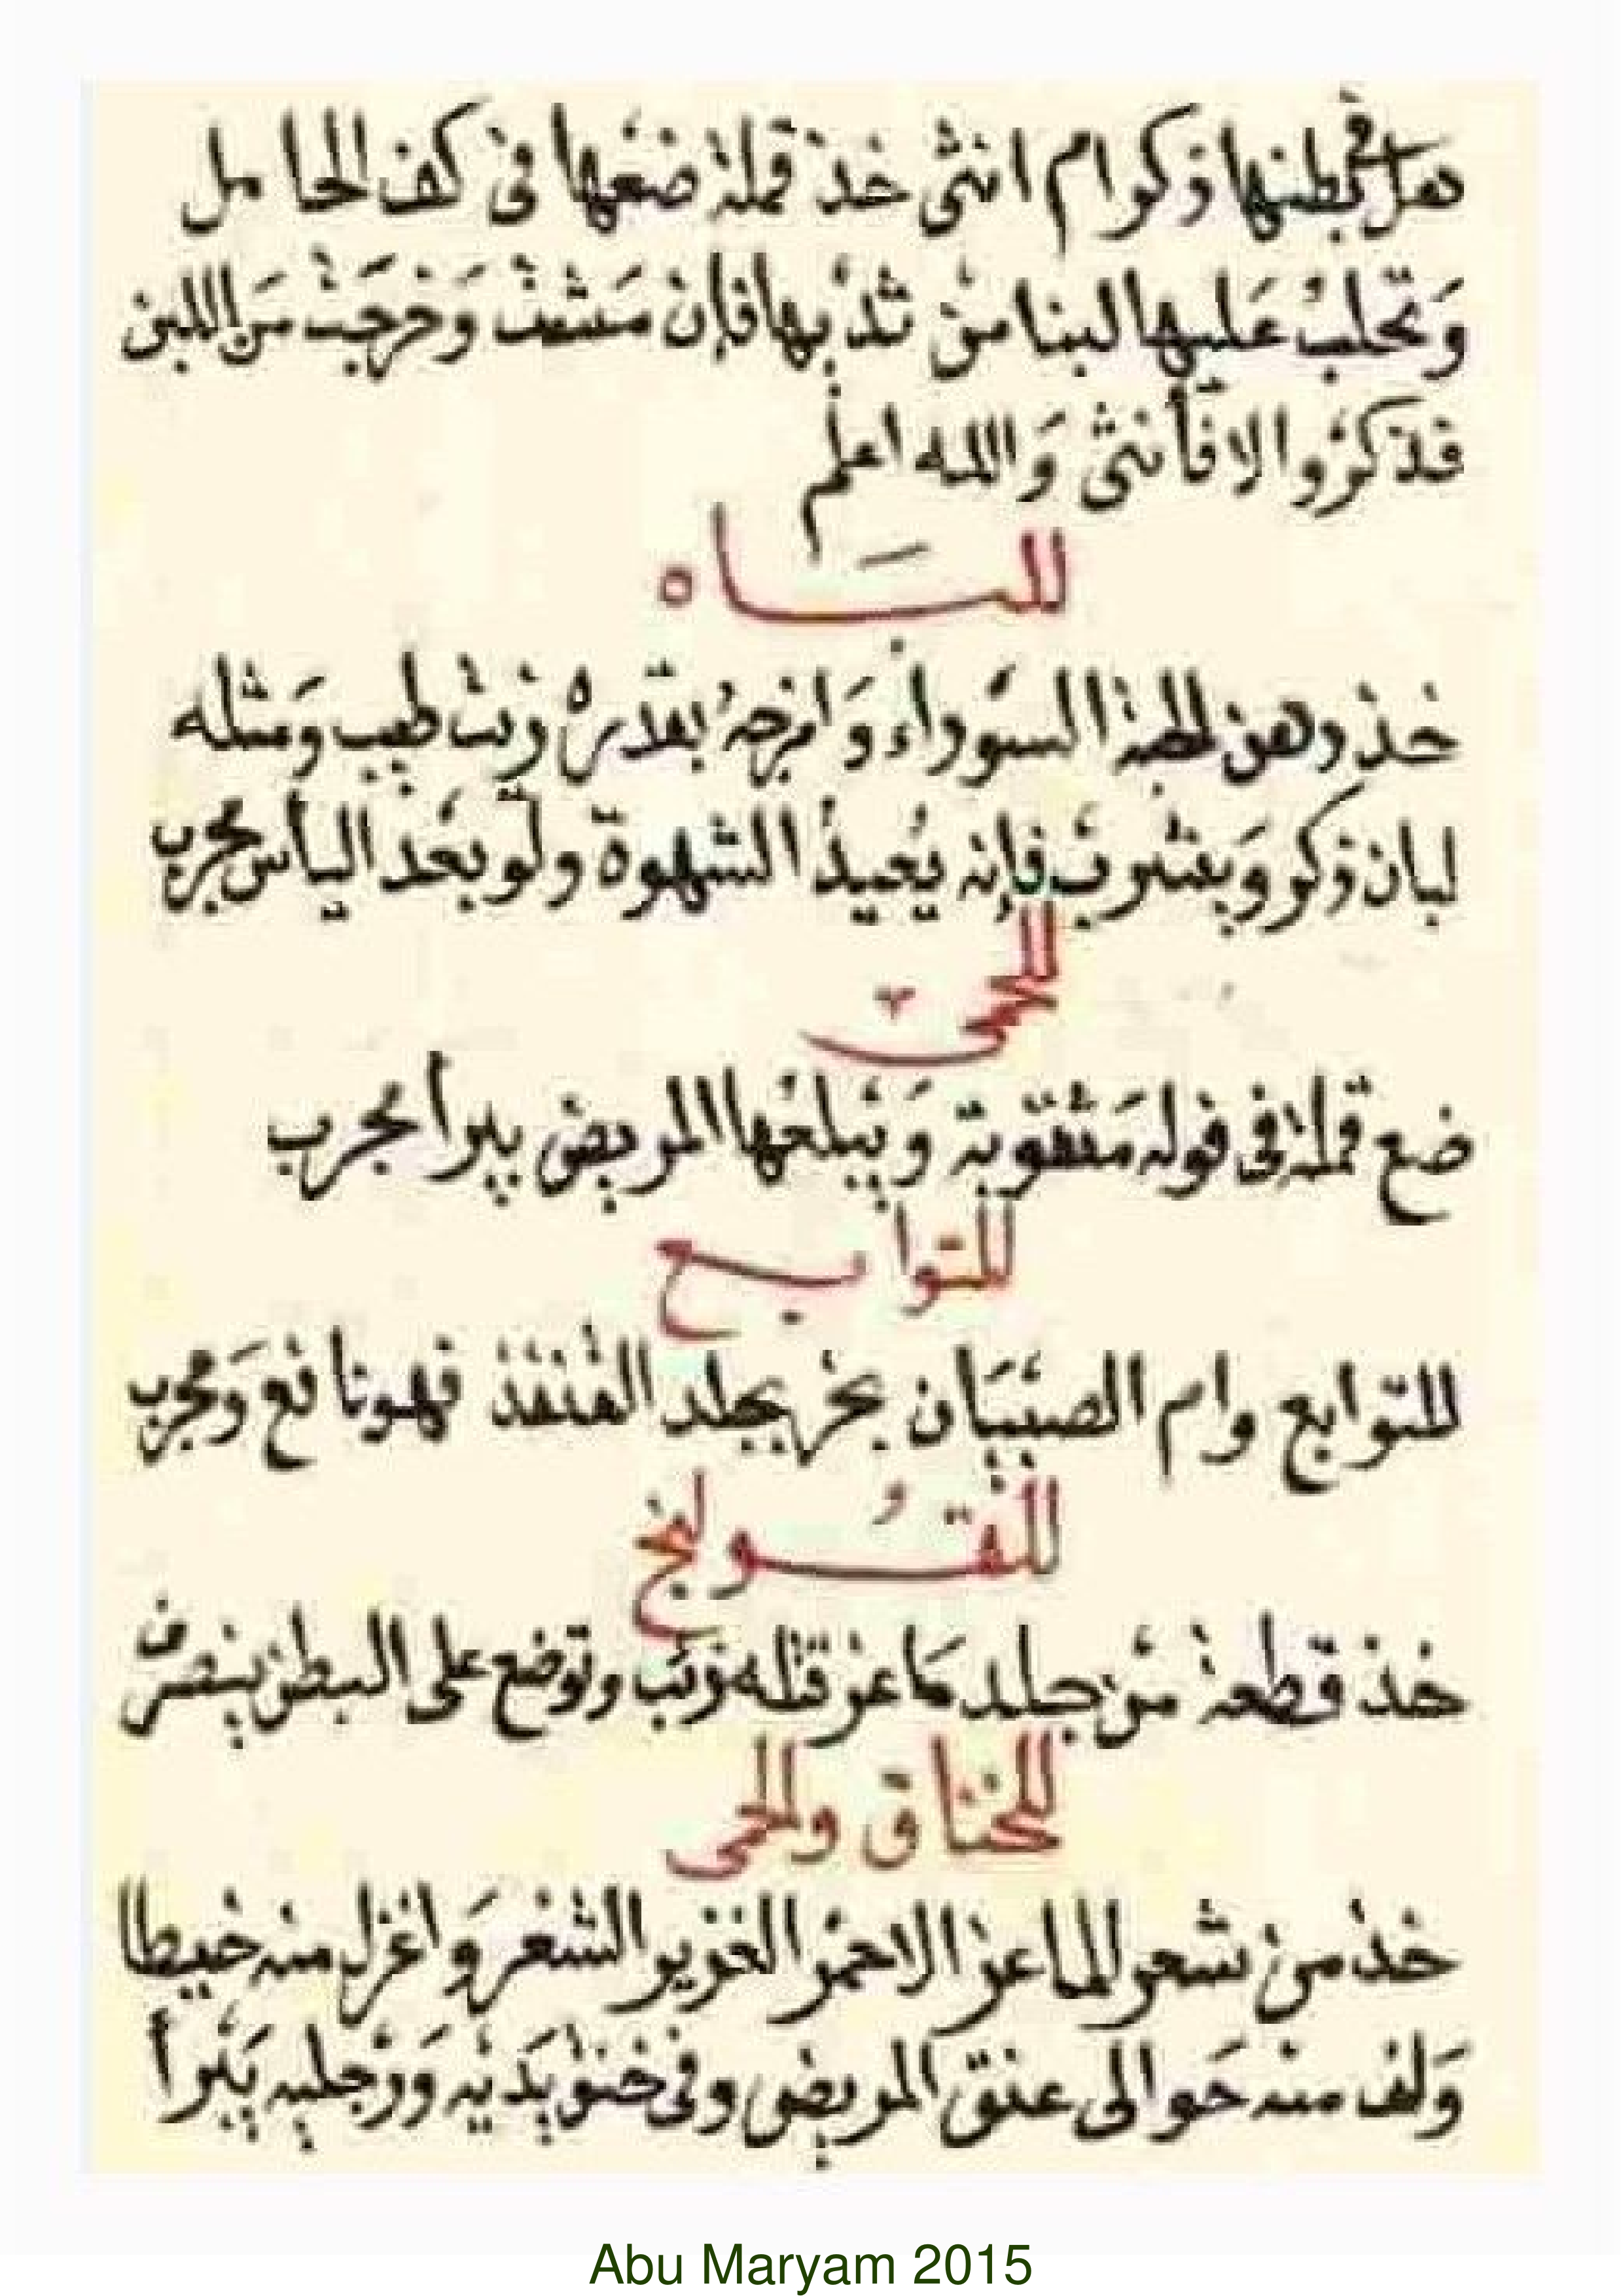 هل في بطنها ذكر وام انثى خذ قملة ضعها في كف الحامل
وَتحلبْ عَليها لبنا من ثديها فإن مَشت وَخرجَتْ مَن اللبن
فذكرْ والا فأنثى وَالله اعلم
للبَـــاه
خذ دهن لحبة السَوداء وَامزجهُ بقدره زيت طيب وَمثله
لبان ذكر وَيشربْ فإنه يُعيدُ الشهوة ولو بعْد الياس مجرب
للحمى
ضع قملة في فوله مَثقوبة وَيَبلعْها المريض يبرأ مجرب
للتوابـــع
للتوابع وام الصبْيَان بخر بجلد القنفذ فهو نافع وَمجرب
للقُـــولنج
خذ قطعة منْ جلد مَاعز قتله ذئب وتوضع على البطن ينصرف
للخناق والحمى
خذ منْ شعر الماعز الاحمرْ الغزير الشعْر وَاغزل منه خيطا
وَلف منه حَوالى عنق المريض وفى خنو يَديْه وَرْجليه يَبْرأ
Abu Maryam 2015